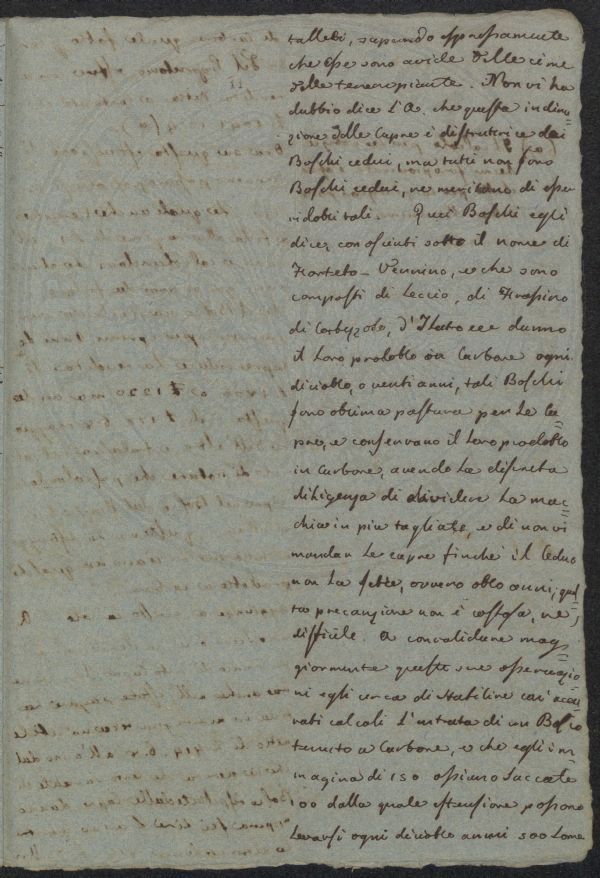 talledi, sapendo espressamente
che esse sono avide delle cime
delle tenere piante. Non vi ha
dubbio dice l'A. che questa indina=
zione delle Capre è distrutrice dei
Boschi cedui, ma tutti non sono
Boschi cedui, ne meritano di esser
ridotti tali. Quei Boschi egli
dice, conosciuti sotto il nome di
Forteto_ Vernino, e che sono
composti di Leccio, di Frassino
di Corbezzolo, d'Ilatro ecc danno
il loro prodotto in Carbone ogni
diciotto, o venti anni, tali Boschi
sono ottima pastura per le Ca=
pre, e conservano il loro prodotto
in Carbone, avendo la discreta
diligenza di dividere la mac=
chia in più tagliate, e di non vi
mandar le capre finchè il Ceduo
non ha sette, ovvero otto anni; ques=
ta precauzione non è costosa, ne
difficile. A convalidare mag=
giormente queste sue osservazio=
ni egli cerca di stabilire con accu=
rati calcoli l'entrata di un Bosco
tenuto a Carbone, e che egli im=
magina di 150 ossiano Saccate
100 dalla quale estensione possono
levarsi ogni diciotto anni 500 Some